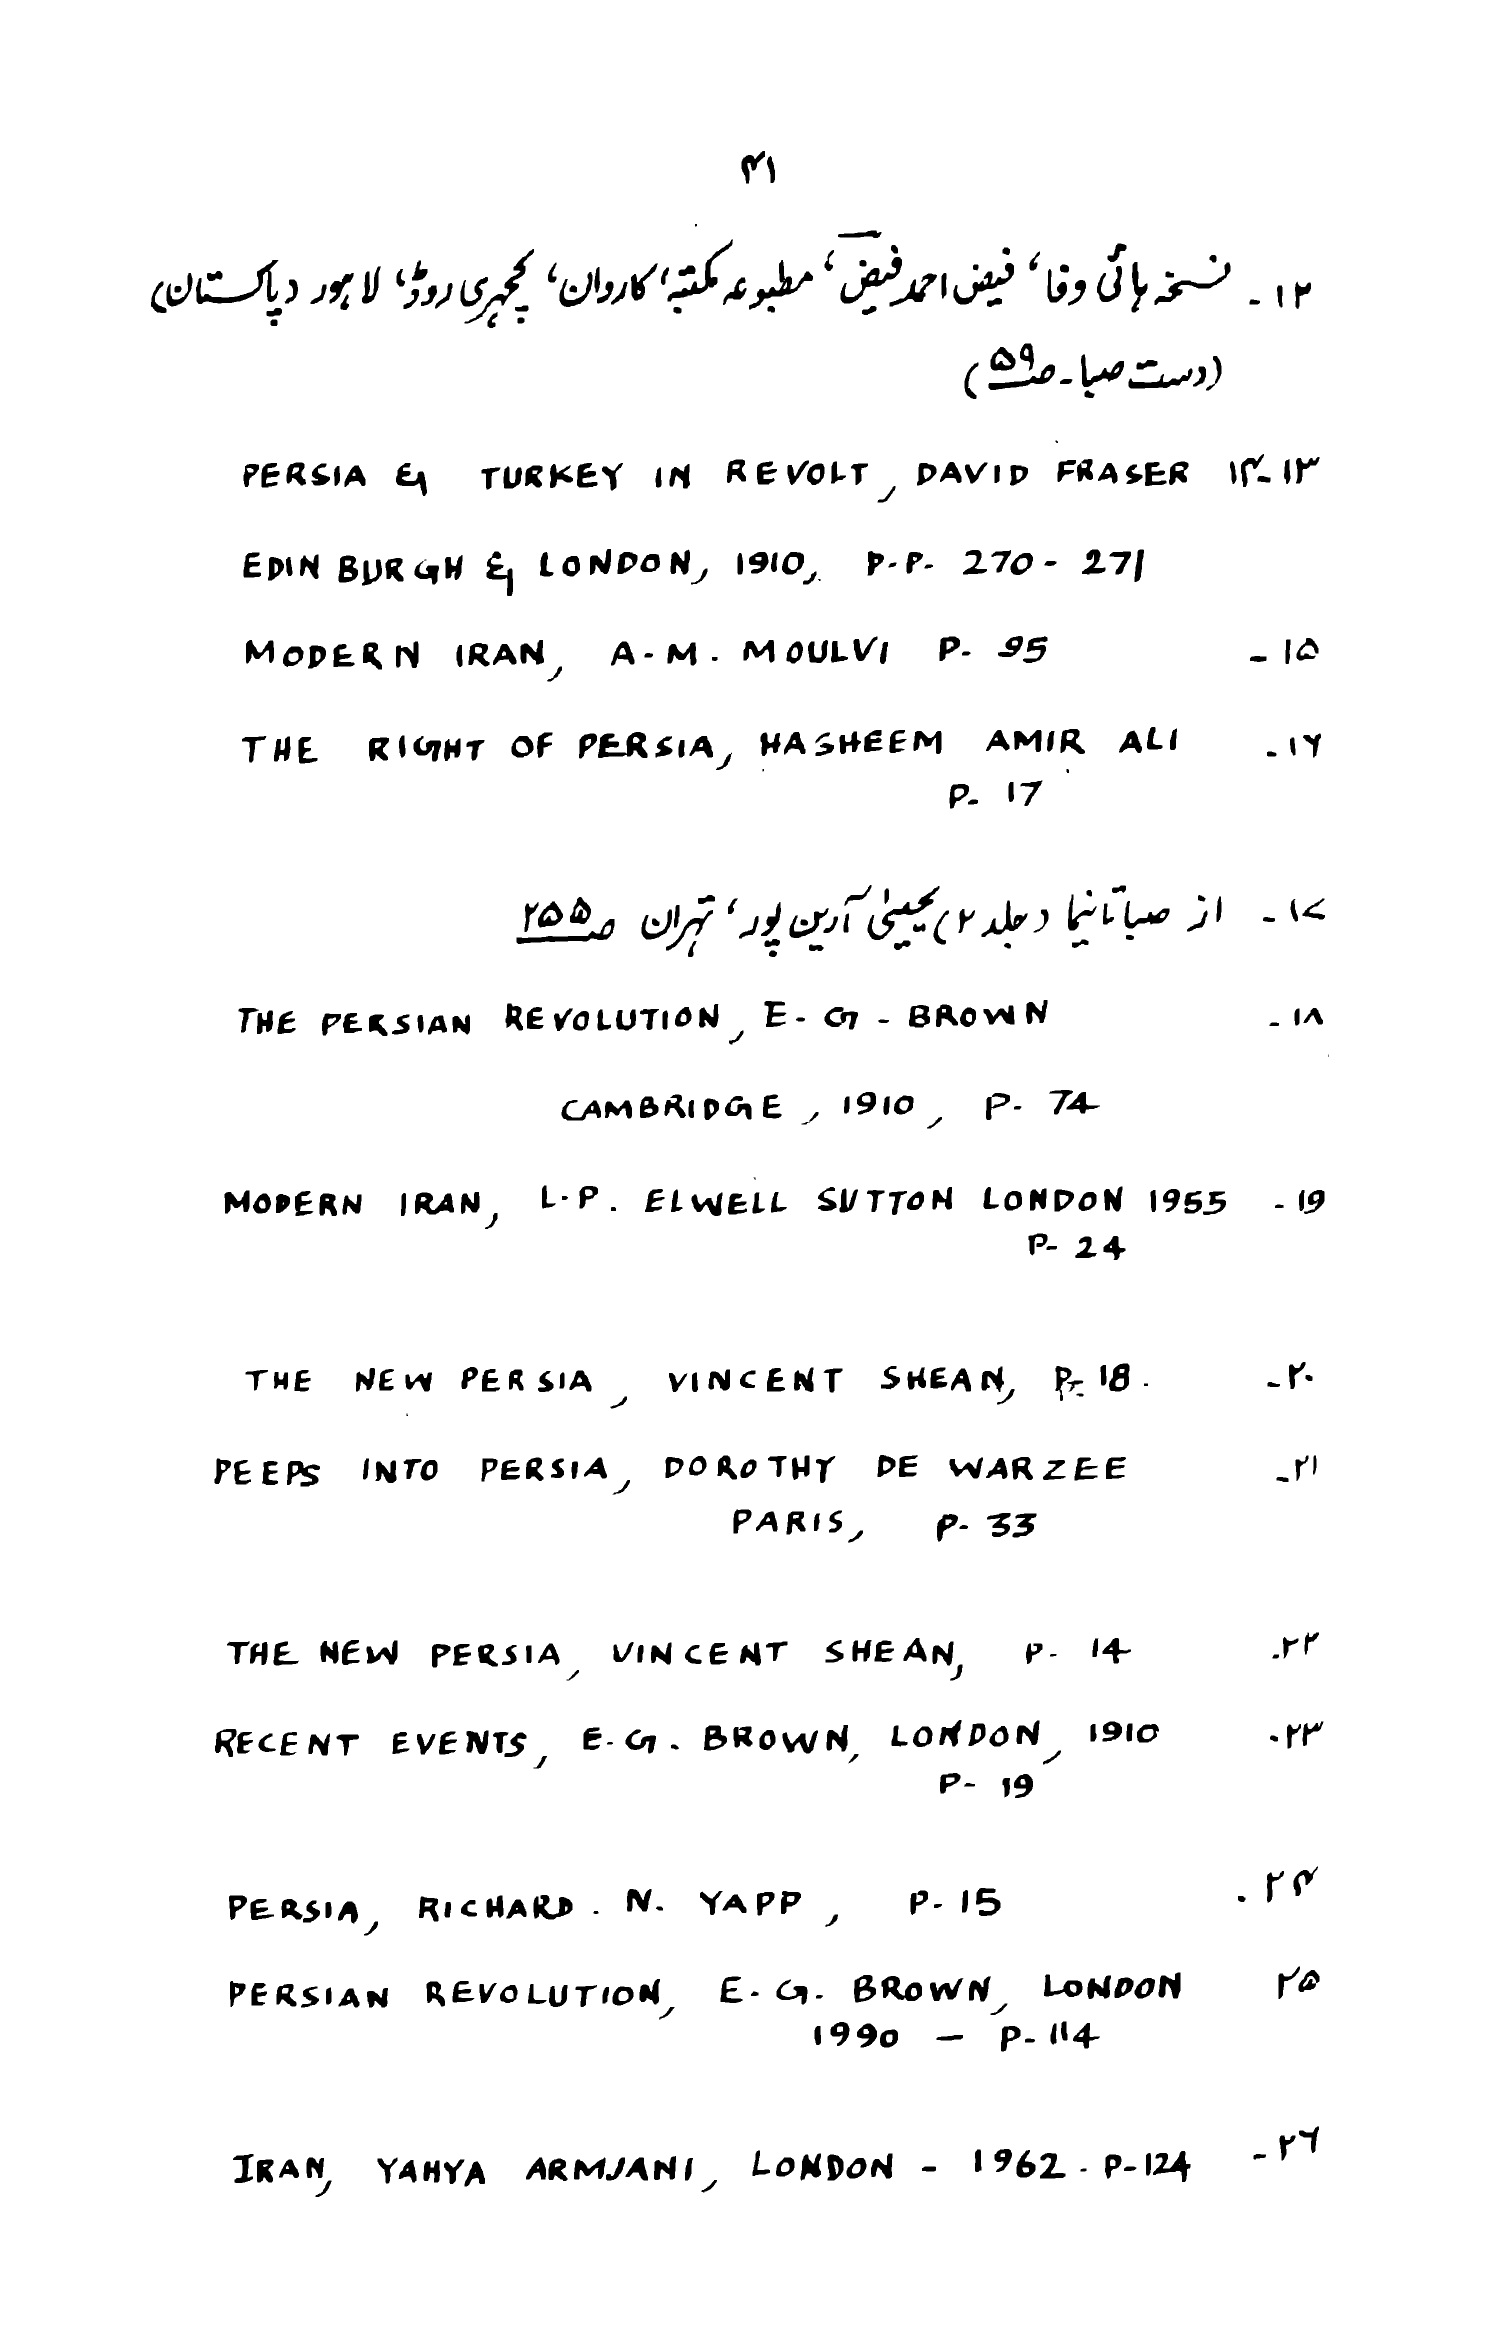 ۴۱
۱۲۔ نسخہ ہائی وفا، فیض احمد فیضؔ، مطبوعہ مکتبہ 'کارواں'، کچہری روڈ، لاہور (پاکستان)
(دست صبا۔ ص ۵۹)
۱۳۔۱۴ PERSIA & TURKEY IN REVOLT, DAVID FRASER
EDINBURGH & LONDON, 1910, P.P. 270-271
۱۵۔ MODERN IRAN, A.M. MOULVI P. 95
۱۶۔ THE RIGHT OF PERSIA, HASHEEM AMIR ALI
P. 17
۱۷۔ از صبا تا نیما (جلد ۲) یحییٰ آرین پور، تہران ص ۲۵۵
۱۸۔ THE PERSIAN REVOLUTION, E.G. BROWN
CAMBRIDGE, 1910, P. 74
۱۹۔ MODERN IRAN, L.P. ELWELL SUTTON LONDON 1955
P- 24
۲۰۔ THE NEW PERSIA, VINCENT SHEAN, P. 18.
۲۱۔ PEEPS INTO PERSIA, DOROTHY DE WARZEE
PARIS, P. 33
۲۲۔ THE NEW PERSIA, VINCENT SHEAN, P. 14
۲۳۔ RECENT EVENTS, E.G. BROWN, LONDON, 1910
P- 19
۲۴۔ PERSIA, RICHARD. N. YAPP, P. 15
۲۵ PERSIAN REVOLUTION, E.G. BROWN, LONDON
1990 — P-114
۲۶۔ IRAN, YAHYA ARMJANI, LONDON - 1962. P-124